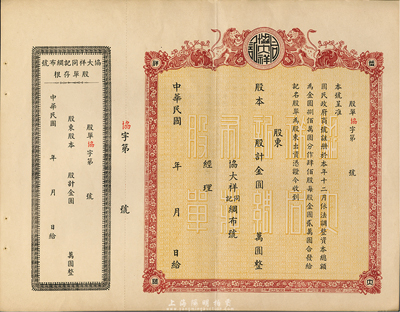 股單協字第 號
本號呈准
國民政府商號註冊於本年十二月依法調整資本總額
為金圓捌佰萬圓分作肆佰股每股金圓貳萬圓合發給
記名股單為股東出資憑證今收到
股東
股本 股計金圓 萬圓整
協大祥同記綢布號
經理
中華民國 年 月 日給
協字第 號
協大祥同記綢布號
股單存根
股單協字第 號
股東
股本 股計金圓 萬圓整
中華民國 年 月 日給